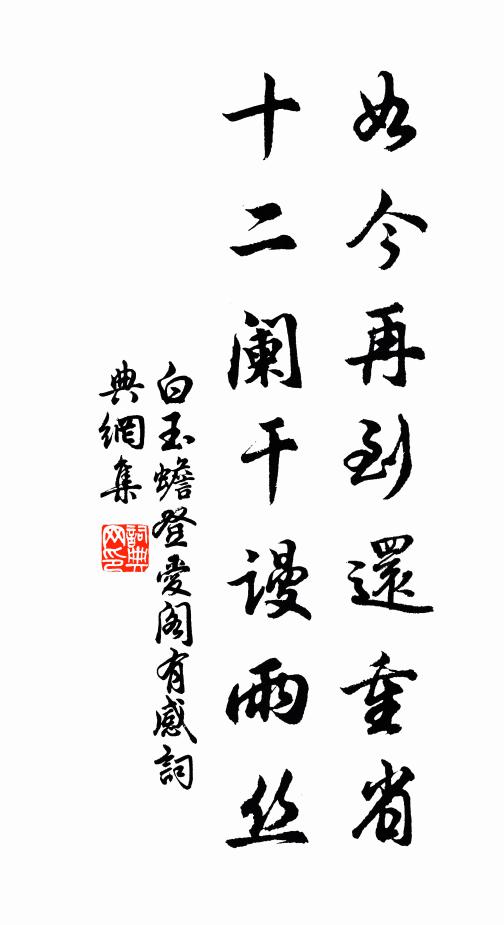 如今再到還重省
十二阑干謾雨丝
白玉蟾登愛阁有感詞
典網集
詞典網印